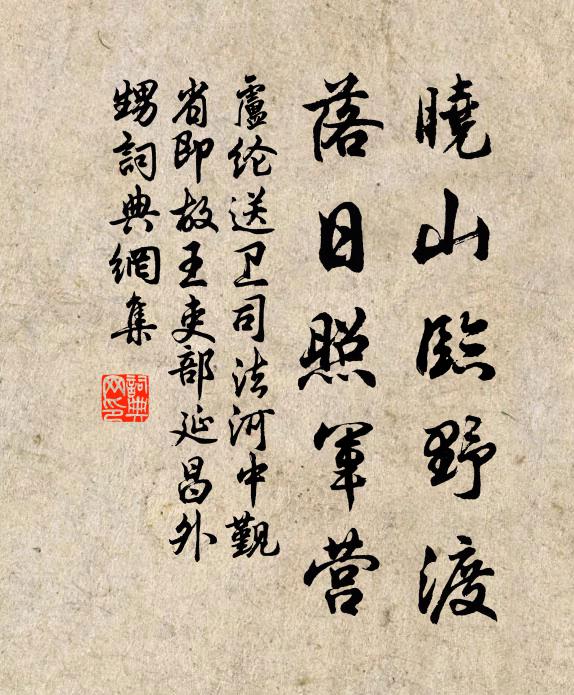 曉山臨野渡
落日照軍营
盧纶送卫司法河中覲
省即故王吏部延昌外
甥詞典網集
詞典网印